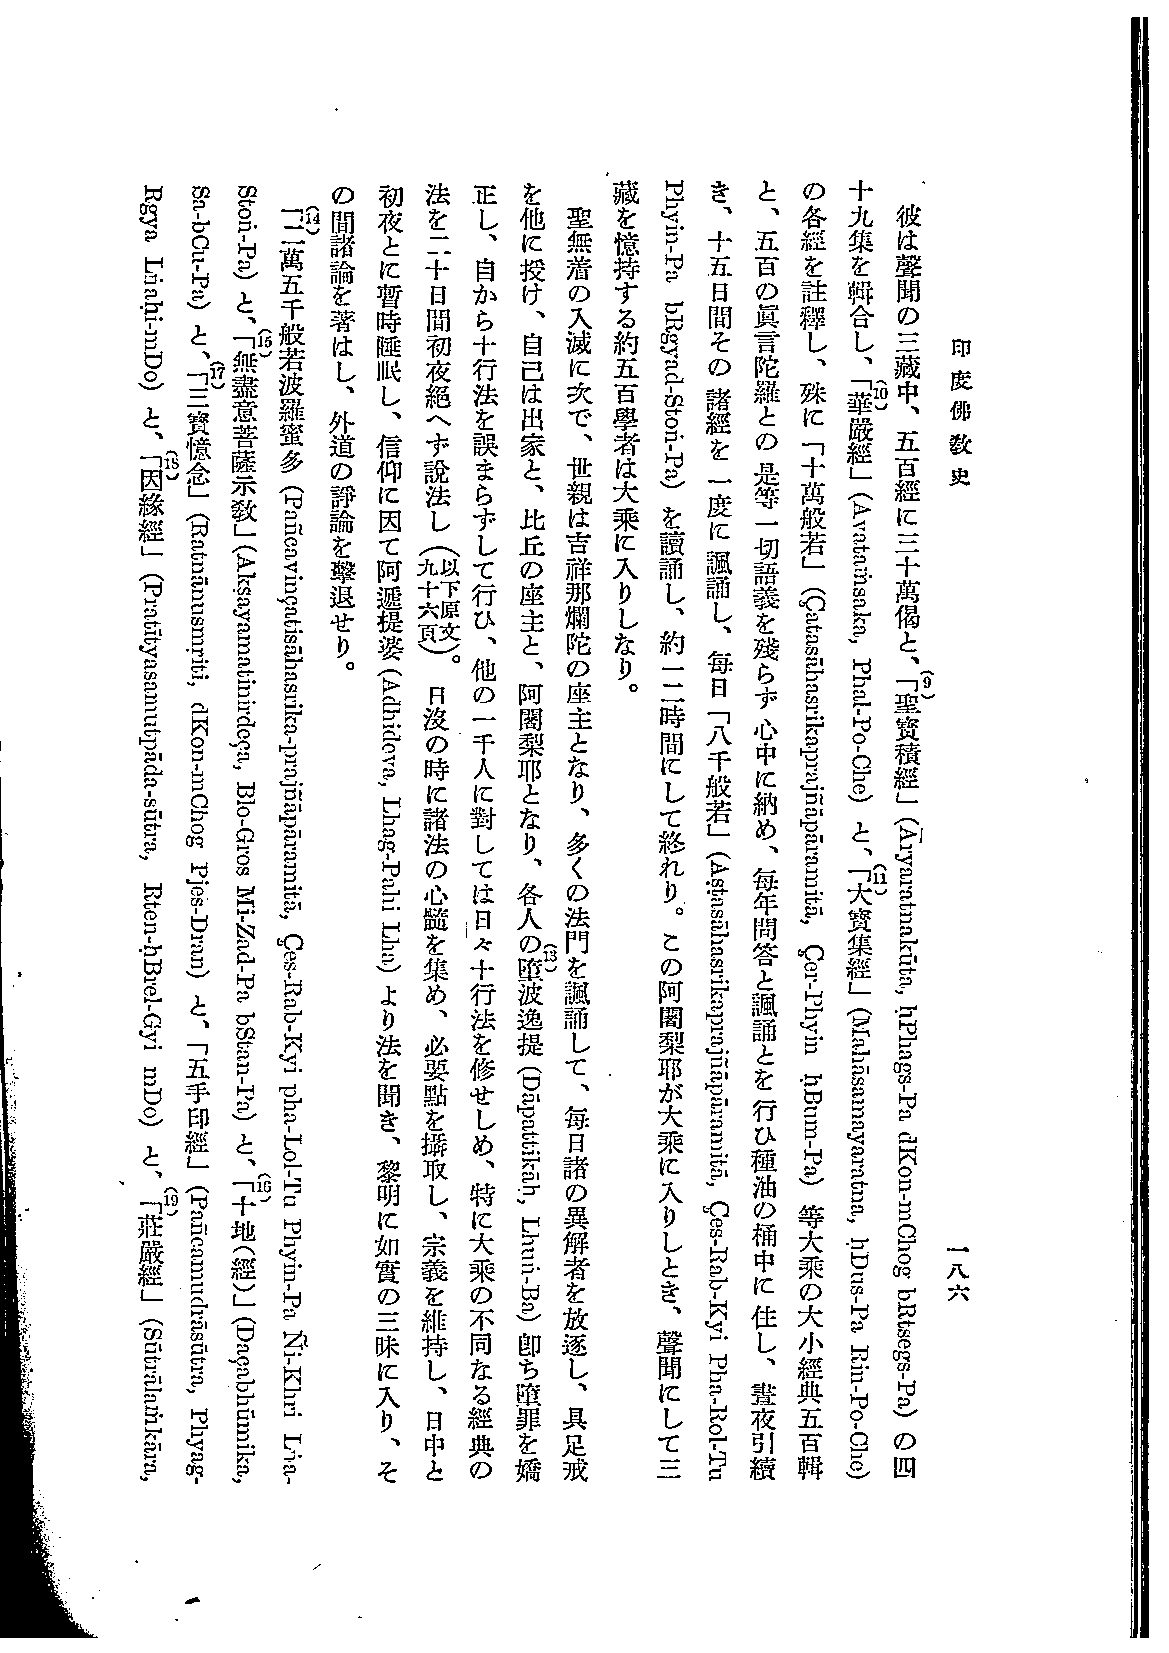 印度佛敎史
一八六
彼は聲聞の三藏中、五百經に三十萬偈と、「聖寶積經」(9)(Āryaratnakūṭa, ḥPhags-Pa dKon-mChog bRtsegs-Pa) の四
十九集を輯合し、「華嚴經」(10)(Avataṁsaka, Phal-Po-Che) と、「大寶集經」(11)(Mahāsamayaratna, ḥDus-Pa Rin-Po-Che)
の各經を註釋し、殊に「十萬般若」(Çatasāhasrikaprajñāpāramitā, Çer-Phyin ḥBum-Pa) 等大乘の大小經典五百輯
と、五百の眞言陀羅との是等一切語義を殘らず心中に納め、每年問答と諷誦とを行ひ種油の桶中に住し、晝夜引續
き、十五日間その諸經を一度に諷誦し、每日「八千般若」(Aṣṭasāhasrikaprajñāpāramitā, Çes-Rab-Kyi Pha-Rol-Tu
Phyin-Pa bRgyad-Stoṅ-Pa) を讀誦し、約一二時間にして終れり。この阿闍梨耶が大乘に入りしとき、聲聞にして三
藏を憶持する約五百學者は大乘に入りしなり。
聖無着の入滅に次で、世親は吉祥那爛陀の座主となり、多くの法門を諷誦して、每日諸の異解者を放逐し、具足戒
を他に授け、自己は出家と、比丘の座主と、阿闍梨耶となり、各人の墮波逸提(13)(Dāpattikāḥ, Lhuṅ-Ba) 卽ち墮罪を矯
正し、自から十行法を誤まらずして行ひ、他の一千人に對しては日々十行法を修せしめ、特に大乘の不同なる經典の
法を二十日間初夜絕へず說法し(以下原文九十六頁)。日沒の時に諸法の心髓を集め、必要點を攝取し、宗義を維持し、日中と
初夜とに暫時睡眠し、信仰に因て阿遞提婆 (Adhideva, Lhag-Pahi Lha) より法を聞き、黎明に如實の三昧に入り、そ
の間諸論を著はし、外道の諍論を擊退せり。
「二萬五千般若波羅蜜多(14)(Pañcavinçatisāhasrika-prajñāpāramitā, Çes-Rab-Kyi pha-Lol-Tu Phyin-Pa Ñi-Khri Lṅa-
Stoṅ-Pa) と、「無盡意菩薩示敎」(15)(Akṣayamatinirdeça, Blo-Gros Mi-Zad-Pa bStan-Pa) と、「十地(經)」(16)(Daçabhūmika,
Sa-bCu-Pa) と、「三寶憶念」(17)(Ratnānusmṛiti, dKon-mChog rjes-Dran) と、「五手印經」(Pañcamudrāsūtra, Phyag-
Rgya Lṅaḥi-mDo) と、「因緣經」(18)(Pratītyasamutpāda-sūtra, Rten-ḥBrel-Gyi mDo) と、「莊嚴經」(19)(Sūtrālaṁkāra,